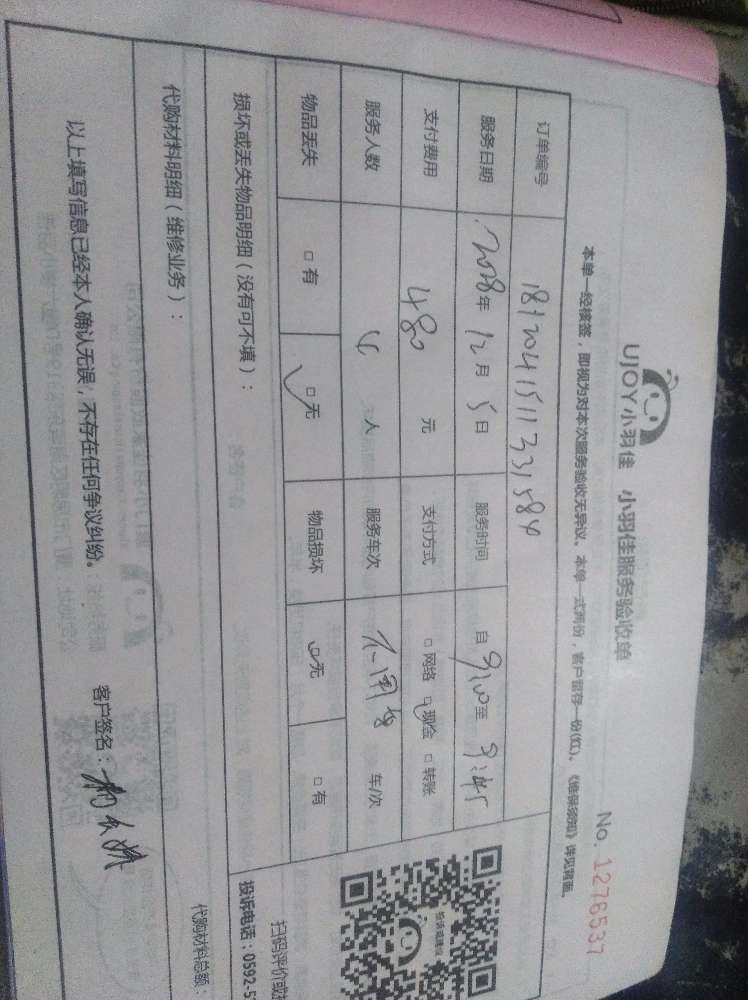 UJOY小羽佳 小羽佳服务验收单
No. 1276537
本单一经核签，即视为对本次服务验收无异议。本单一式两份，客户留存一份(红)。《维保须知》详见背面。
订单编号 1812041511331584
服务日期 2018年12月5日 服务时间 自 9:00至 9:45
支付费用 480 元 支付方式 □网络 □现金 □转账
服务人数 人 服务车次 不用车 车/次
物品丢失 □有 □无 物品损坏 □无 □有
损坏或丢失物品明细（没有可不填）：
扫码评价或
投诉电话：0592-5
投诉或建议
代购材料明细（维修业务）：
代购材料总额：
以上填写信息已经本人确认无误，不存在任何争议纠纷。
客户签名：